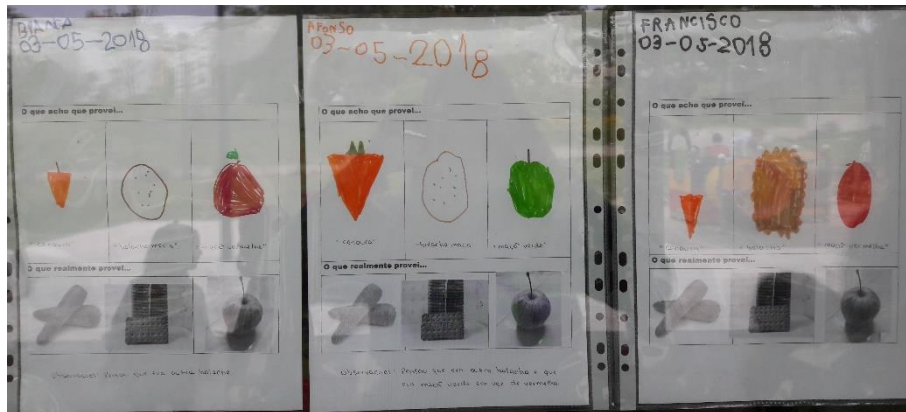 BIANCA
03-05-2018
O que acho que provei...
"bolacha maria"
O que realmente provei...
Observações: Pensou que era outra bolacha
AFONSO
03-05-2018
O que acho que provei...
"cenoura"
"bolacha maria"
"maçã verde"
O que realmente provei...
Observações: Pensou que era outra bolacha e que
era maçã verde em vez de vermelha
FRANCISCO
03-05-2018
O que acho que provei...
"cenoura"
"bolacha"
"maçã vermelha"
O que realmente provei...